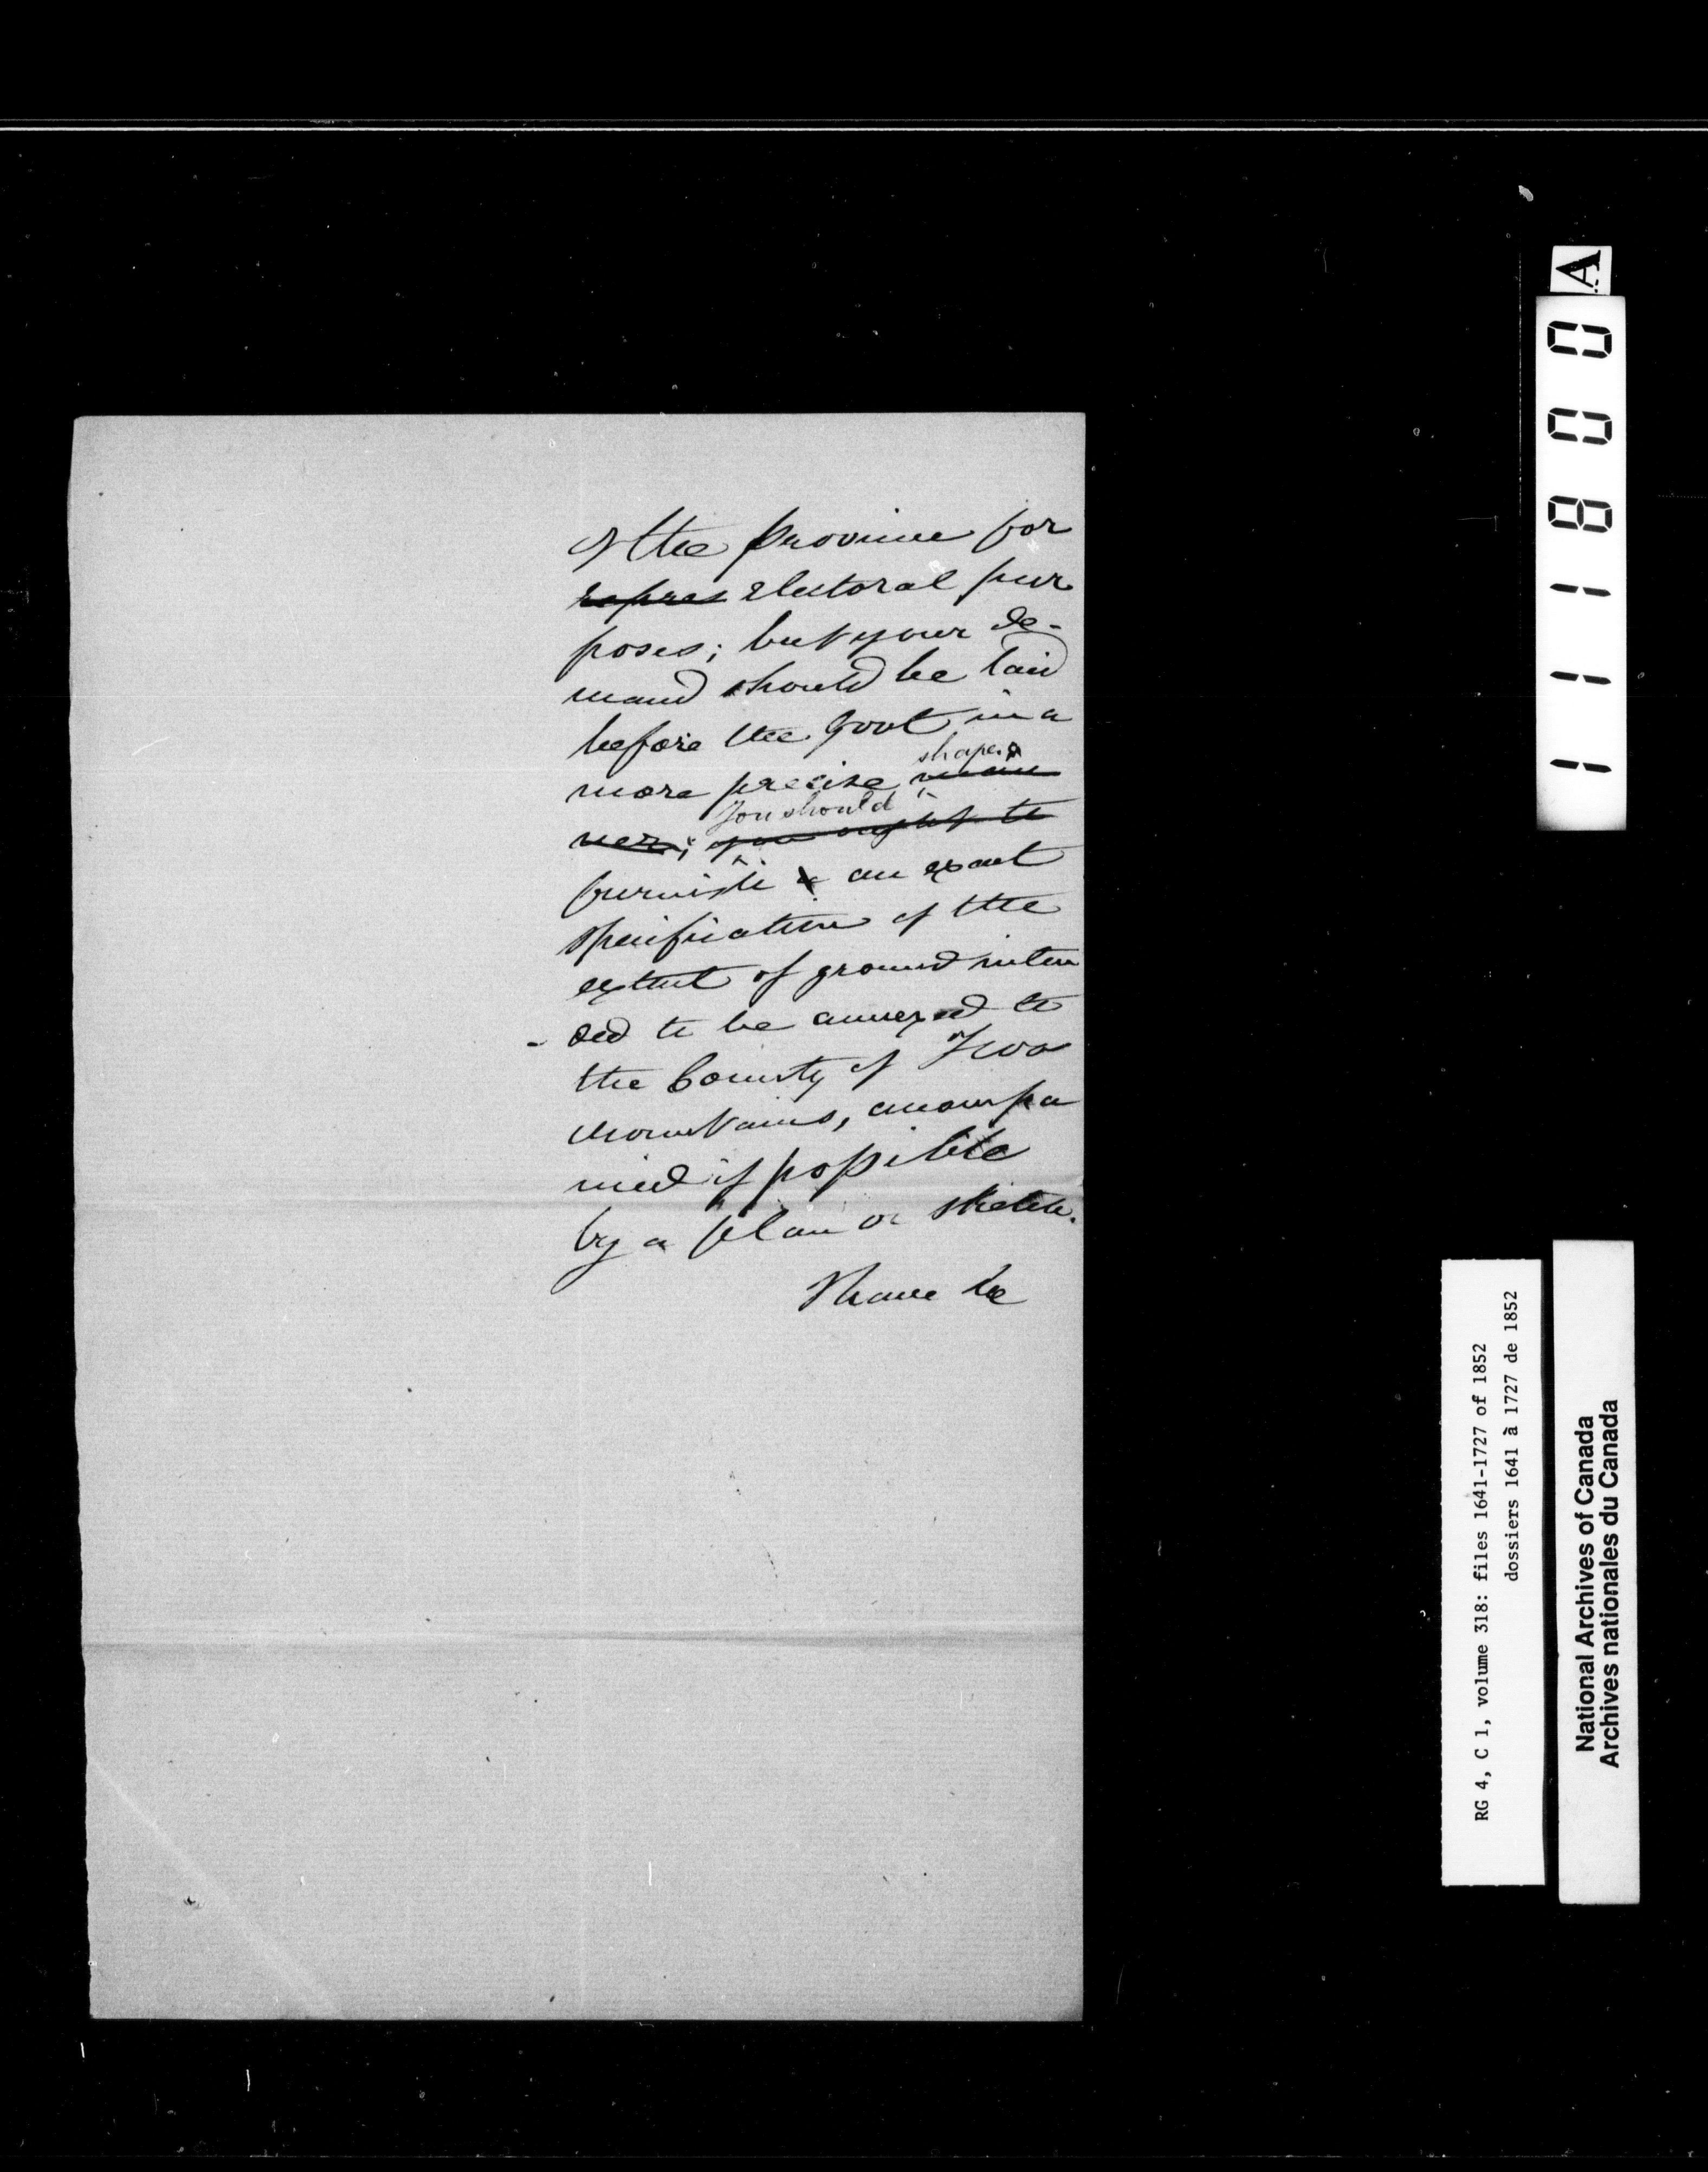 of the province for
repres electoral pur
poses; but your de-
mand should be laid
before the Govt in a
shape &
more precise man
You should
ner; you ought to
furnish a an exact
specification of the
extent of ground inten
- ded to be annexed to
the County of Two
Mountains, accompa
nied if possible
by a plan or sketch.
I have &c
A
111800
RG 4, C 1, volume 318: files 1641-1727 of 1852
dossiers 1641 à 1727 de 1852
National Archives of Canada
Archives nationales du Canada